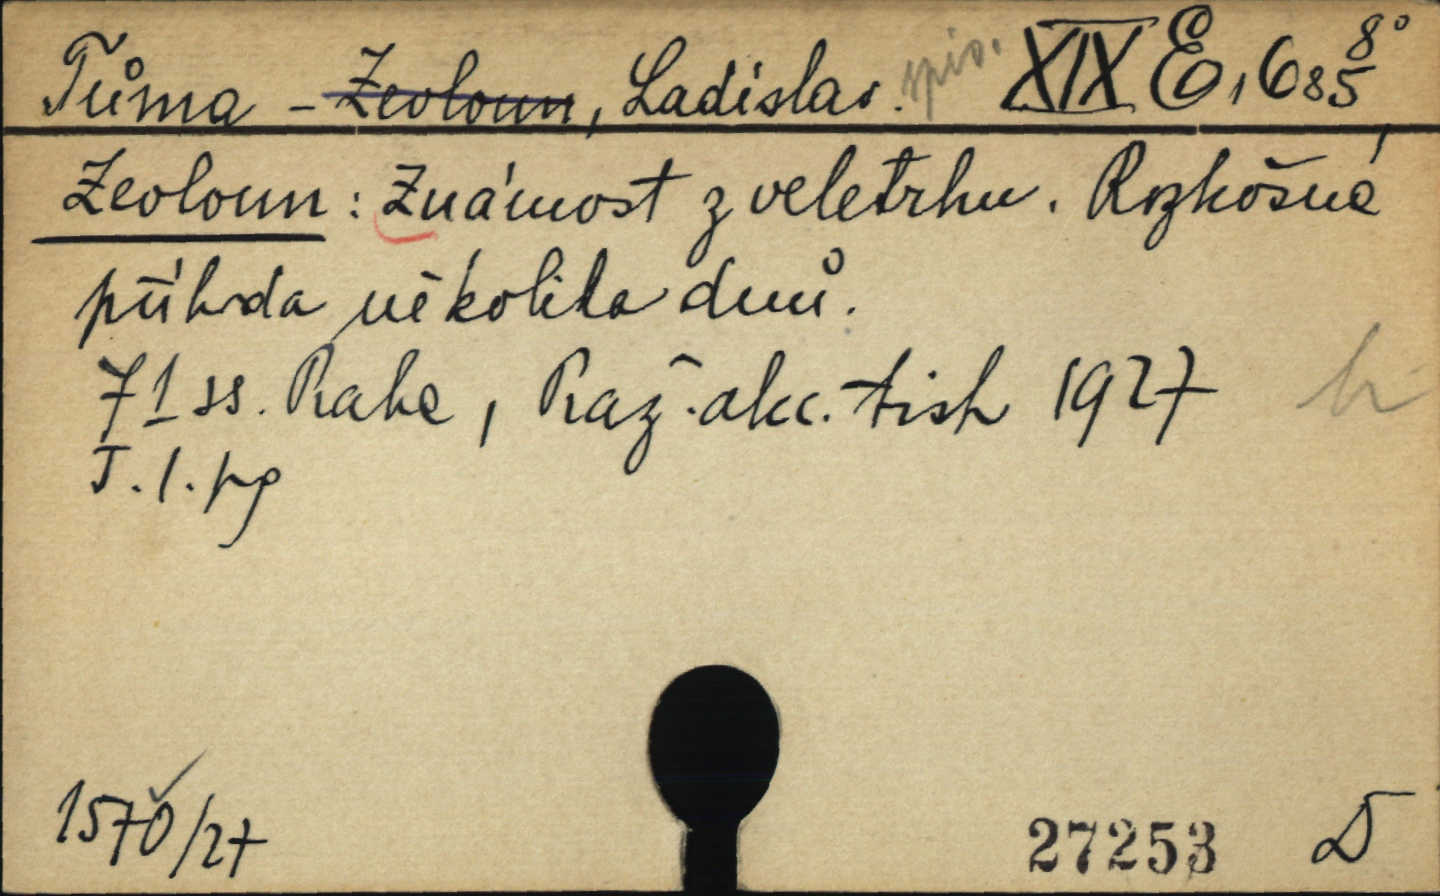 Tůma - Zeoloun, Ladislav. spis. XIX E, 685 8°
Zeoloun: Známost z veletrhu. Rozkošná
příhoda několika dnů.
71 ss. Praha, Praž. akc. tisk 1927
T. 1. pg
1570/27
27253
D